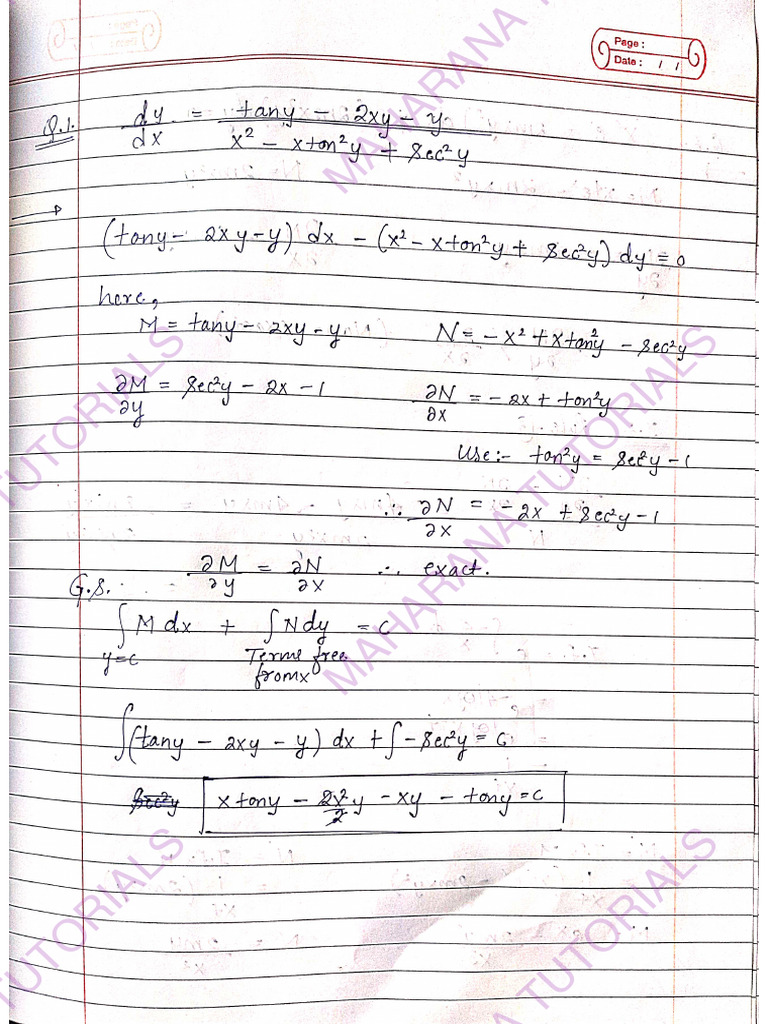 Page :
Date : / /
Q.1. dy/dx = tany - 2xy - y / x² - xtan²y + sec²y
→
(tany - 2xy - y) dx - (x² - xtan²y + sec²y) dy = 0
here,
M = tany - 2xy - y N = - x² + xtan²y - sec²y
∂M/∂y = sec²y - 2x - 1 ∂N/∂x = - 2x + tan²y
Use :- tan²y = sec²y - 1
∴ ∂N/∂x = - 2x + sec²y - 1
∂M/∂y = ∂N/∂x ∴ exact.
G.S.
∫ M dx + ∫ N dy = c
y=c Terms free
from x
∫(tany - 2xy - y) dx + ∫ - sec²y = c
sec²y x tany - 2x²/2 y - xy - tany = c
MAHARANA TUTORIALS
MAHARANA TUTORIALS
TUTORIALS
TUTORIALS
TUTORIALS